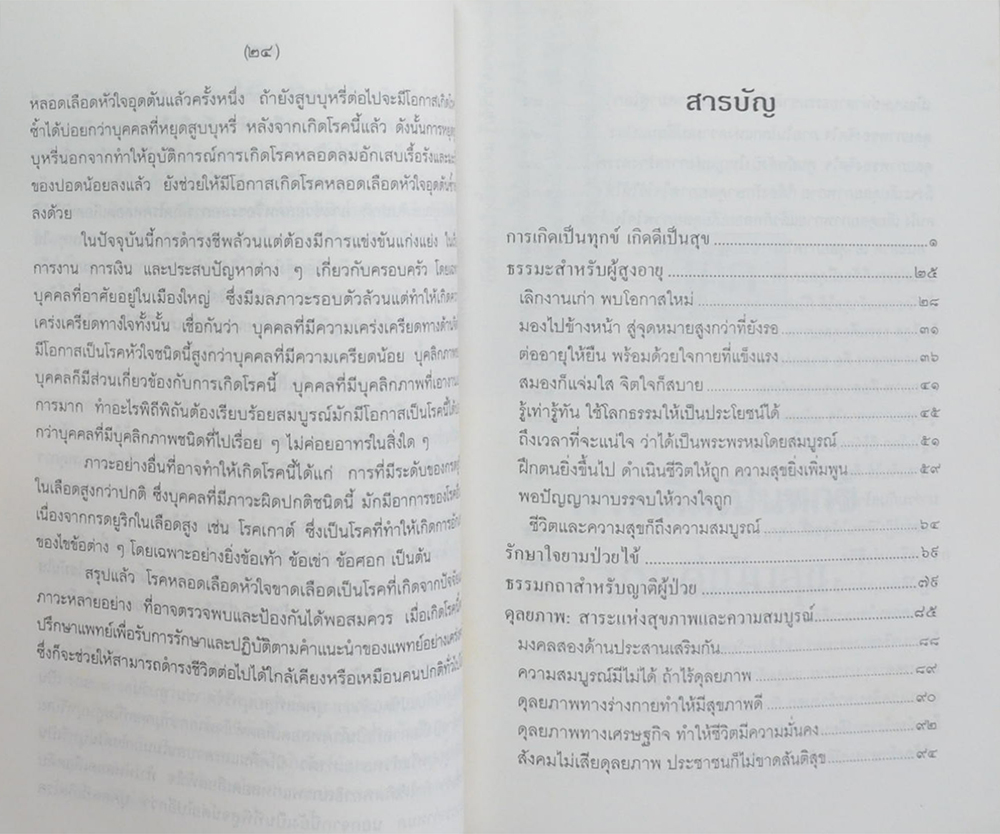 (๒๔)
หลอดเลือดหัวใจอุดตันแล้วครั้งหนึ่ง ถ้ายังสูบบุหรี่ต่อไปจะมีโอกาสเกิด
ซ้ำได้บ่อยกว่าบุคคลที่หยุดสูบบุหรี่ หลังจากเกิดโรคนี้แล้ว ดังนั้นการหยุด
บุหรี่นอกจากทำให้อุบัติการณ์การเกิดโรคหลอดลมอักเสบเรื้อรังและ
ของปอดน้อยลงแล้ว ยังช่วยให้มีโอกาสเกิดโรคหลอดเลือดหัวใจอุดตัน
ลงด้วย
ในปัจจุบันนี้การดำรงชีพล้วนแต่ต้องมีการแข่งขันแก่งแย่ง
การงาน การเงิน และประสบปัญหาต่าง ๆ เกี่ยวกับครอบครัว
บุคคลที่อาศัยอยู่ในเมืองใหญ่ ซึ่งมีมลภาวะรอบตัวล้วนแต่ทำให้เกิด
เคร่งเครียดทางใจทั้งนั้น เชื่อกันว่า บุคคลที่มีความเคร่งเครียดทาง
มีโอกาสเป็นโรคหัวใจชนิดนี้สูงกว่าบุคคลที่มีความเครียดน้อย บุคลิกภาพ
บุคคลก็มีส่วนเกี่ยวข้องกับการเกิดโรคนี้ บุคคลที่มีบุคลิกภาพที่เอางาน
การมาก ทำอะไรพิถีพิถันต้องเรียบร้อยสมบูรณ์มักมีโอกาสเป็นโรคนี้ได้
กว่าบุคคลที่มีบุคลิกภาพชนิดที่ไปเรื่อย ๆ ไม่ค่อยอาทรในสิ่งใด ๆ
ภาวะอย่างอื่นที่อาจทำให้เกิดโรคนี้ได้แก่ การที่มีระดับของกรด
ในเลือดสูงกว่าปกติ ซึ่งบุคคลที่มีภาวะผิดปกติชนิดนี้ มักมีอาการของโรค
เนื่องจากกรดยูริกในเลือดสูง เช่น โรคเกาต์ ซึ่งเป็นโรคที่ทำให้เกิดการ
ของไขข้อต่าง ๆ โดยเฉพาะอย่างยิ่งข้อเท้า ข้อเข่า ข้อศอก เป็นต้น
สรุปแล้ว โรคหลอดเลือดหัวใจขาดเลือดเป็นโรคที่เกิดจากปัจจัย
ภาวะหลายอย่าง ที่อาจตรวจพบและป้องกันได้พอสมควร เมื่อเกิดโรค
ปรึกษาแพทย์เพื่อรับการรักษาและปฏิบัติตามคำแนะนำของแพทย์อย่าง
ซึ่งก็จะช่วยให้สามารถดำรงชีวิตต่อไปได้ใกล้เคียงหรือเหมือนคนปกติ
สารบัญ
การเกิดเป็นทุกข์ เกิดดีเป็นสุข ๑
ธรรมะสำหรับผู้สูงอายุ ๒๕
เลิกงานเก่า พบโอกาสใหม่ ๒๘
มองไปข้างหน้า สู่จุดหมายสูงกว่าที่ยังรอ ๓๑
ต่ออายุให้ยืน พร้อมด้วยใจกายที่แข็งแรง ๓๖
สมองก็แจ่มใส จิตใจก็สบาย ๔๑
รู้เท่ารู้ทัน ใช้โลกธรรมให้เป็นประโยชน์ได้ ๔๕
ถึงเวลาที่จะแน่ใจ ว่าได้เป็นพระพรหมโดยสมบูรณ์ ๕๑
ฝึกตนยิ่งขึ้นไป ดำเนินชีวิตให้ถูก ความสุขยิ่งเพิ่มพูน ๕๙
พอปัญญามาบรรจบให้วางใจถูก
ชีวิตและความสุขก็ถึงความสมบูรณ์ ๖๔
รักษาใจยามป่วยไข้ ๖๙
ธรรมกถาสำหรับญาติผู้ป่วย ๗๙
ดุลยภาพ: สาระแห่งสุขภาพและความสมบูรณ์ ๘๕
มงคลสองด้านประสานเสริมกัน ๘๘
ความสมบูรณ์มีไม่ได้ ถ้าไร้ดุลยภาพ ๘๙
ดุลยภาพทางร่างกายทำให้มีสุขภาพดี ๙๐
ดุลยภาพทางเศรษฐกิจ ทำให้ชีวิตมีความมั่นคง ๙๒
สังคมไม่เสียดุลยภาพ ประชาชนก็ไม่ขาดสันติสุข ๙๔